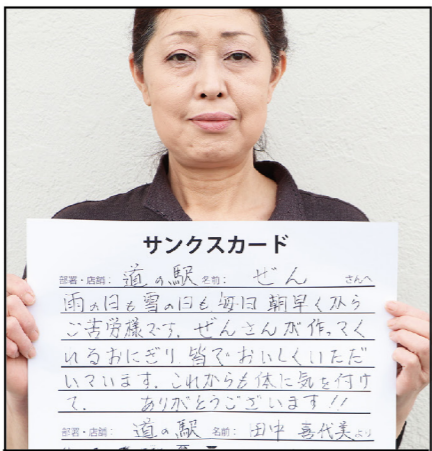 サンクスカード
部署・店舗: 道の駅 名前: ぜん さんへ
雨の日も雪の日も毎日朝早くから
ご苦労様です。ぜんさんが作ってく
いるおにぎり皆でおいしくいただ
いています。これからも体に気を付け
て。 ありがとうございます!!
部署・店舗: 道の駅 名前: 田中 喜代美より